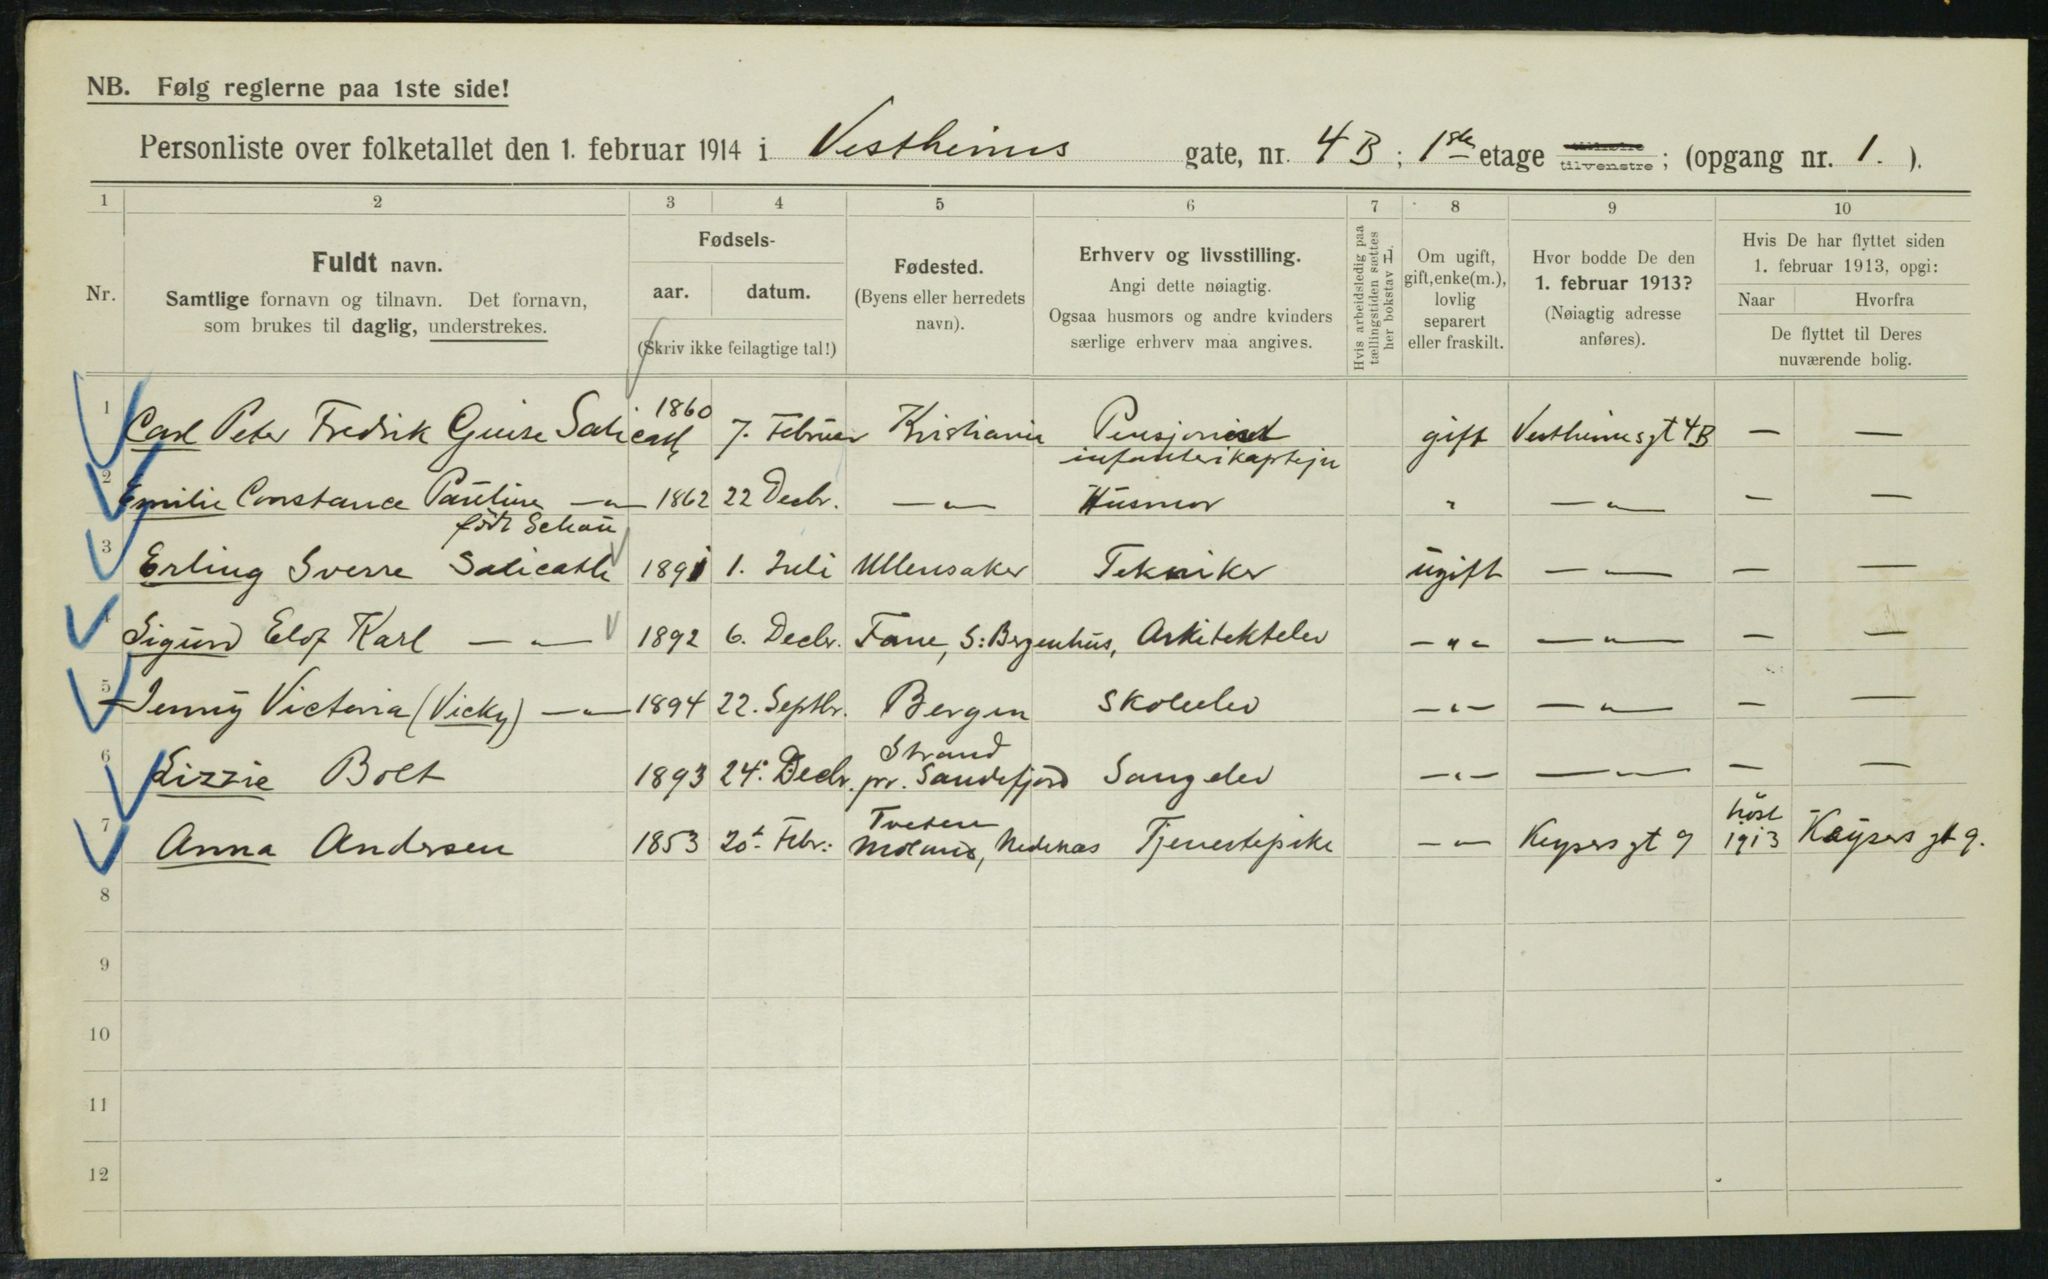 NB. Følg reglerne paa 1ste side!
Personliste over folketallet den 1. februar 1914 i Vestheims gate, nr. 4B; 1ste etage tilvenstre; (opgang nr. 1.).
1 2 3 4 5 6 7 8 9 10
Nr.
Fuldt navn.
Samtlige fornavn og tilnavn. Det fornavn,
som brukes til daglig, understrekes.
Fødsels-
aar. datum.
(Skriv ikke feilagtige tal!)
Fødested.
(Byens eller herredets
navn).
Erhverv og livsstilling.
Angi dette nøiagtig.
Ogsaa husmors og andre kvinders
særlige erhverv maa angives.
Hvis arbeidsledig paa
tællingstiden sættes
her bokstav L.
Om ugift,
gift, enke(m.),
lovlig
separert
eller fraskilt.
Hvor bodde De den
1. februar 1913?
(Nøiagtig adresse
anføres).
Hvis De har flyttet siden
1. februar 1913, opgi:
Naar Hvorfra
De flyttet til Deres
nuværende bolig.
1 Carl Peter Fredrik Salicath 1860 7. Februar Kristiania Pensjonist infanterikaptejn gift Vestheimsgt 4B — —
2 Emilie Constance Pauline —"— født Schou 1862 22 Decbr. —"— Husmor " —"— — —
3 Erling Sverre Salicath 1891 1. Juli Ullensaker Tekniker ugift —"— — —
4 Sigurd Elof Karl —"— 1892 6. Decbr. Fane, S: Bergenhus, Arkitektelev —"— —"— — —
5 Jenny Victoria (Vicky) —"— 1894 22. Septbr. Bergen Skoleelev —"— —"— — —
6 Lizzie Bolt 1893 24. Decbr. Strand pr. Sandefjord Sangelev —"— —"— — —
7 Anna Andersen 1853 20. Febr. Tveten Moland, Nedenæs Tjenestepike —"— Keysers gt 9 høst 1913 Keysers gt 9.
8
9
10
11
12